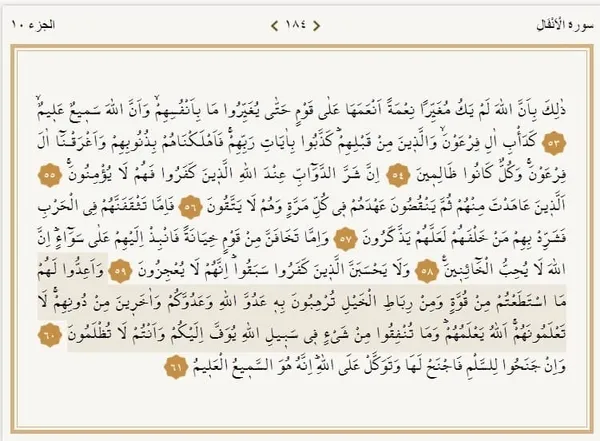 سورة الْاَنْفَالِ ١٨٤ الجزء ١٠
ذٰلِكَ بِاَنَّ اللّٰهَ لَمْ يَكُ مُغَيِّرًا نِعْمَةً اَنْعَمَهَا عَلٰى قَوْمٍ حَتّٰى يُغَيِّرُوا مَا بِاَنْفُسِهِمْۙ وَاَنَّ اللّٰهَ سَمٖيعٌ عَلٖيمٌۙ
٥٣ كَدَأْبِ اٰلِ فِرْعَوْنَۙ وَالَّذٖينَ مِنْ قَبْلِهِمْؕ كَذَّبُوا بِاٰيَاتِ رَبِّهِمْۚ فَاَهْلَكْنَاهُمْ بِذُنُوبِهِمْ وَاَغْرَقْنَٓا اٰلَ
فِرْعَوْنَۚ وَكُلٌّ كَانُوا ظَالِمٖينَ ٥٤ اِنَّ شَرَّ الدَّوَٓابِّ عِنْدَ اللّٰهِ الَّذٖينَ كَفَرُوا فَهُمْ لَا يُؤْمِنُونَۚ ٥٥
اَلَّذٖينَ عَاهَدْتَ مِنْهُمْ ثُمَّ يَنْقُضُونَ عَهْدَهُمْ فٖى كُلِّ مَرَّةٍ وَهُمْ لَا يَتَّقُونَ ٥٦ فَاِمَّا تَثْقَفَنَّهُمْ فِى الْحَرْبِ
فَشَرِّدْ بِهِمْ مَنْ خَلْفَهُمْ لَعَلَّهُمْ يَذَّكَّرُونَ ٥٧ وَاِمَّا تَخَافَنَّ مِنْ قَوْمٍ خِيَانَةً فَانْبِذْ اِلَيْهِمْ عَلٰى سَوَٓاءٍؕ اِنَّ
اللّٰهَ لَا يُحِبُّ الْخَٓائِنٖينَۚ ٥٨ وَلَا يَحْسَبَنَّ الَّذٖينَ كَفَرُوا سَبَقُواؕ اِنَّهُمْ لَا يُعْجِزُونَ ٥٩ وَاَعِدُّوا لَهُمْ
مَا اسْتَطَعْتُمْ مِنْ قُوَّةٍ وَمِنْ رِبَاطِ الْخَيْلِ تُرْهِبُونَ بِهٖ عَدُوَّ اللّٰهِ وَعَدُوَّكُمْ وَاٰخَرٖينَ مِنْ دُونِهِمْۚ لَا
تَعْلَمُونَهُمْۚ اَللّٰهُ يَعْلَمُهُمْؕ وَمَا تُنْفِقُوا مِنْ شَیْءٍ فٖى سَبٖيلِ اللّٰهِ يُوَفَّ اِلَيْكُمْ وَاَنْتُمْ لَا تُظْلَمُونَ ٦٠
وَاِنْ جَنَحُوا لِلسَّلْمِ فَاجْنَحْ لَهَا وَتَوَكَّلْ عَلَى اللّٰهِؕ اِنَّهُ هُوَ السَّمٖيعُ الْعَلٖيمُ ٦١